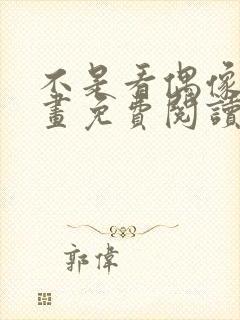 不是看偶像
畫免費閱讀
郭偉